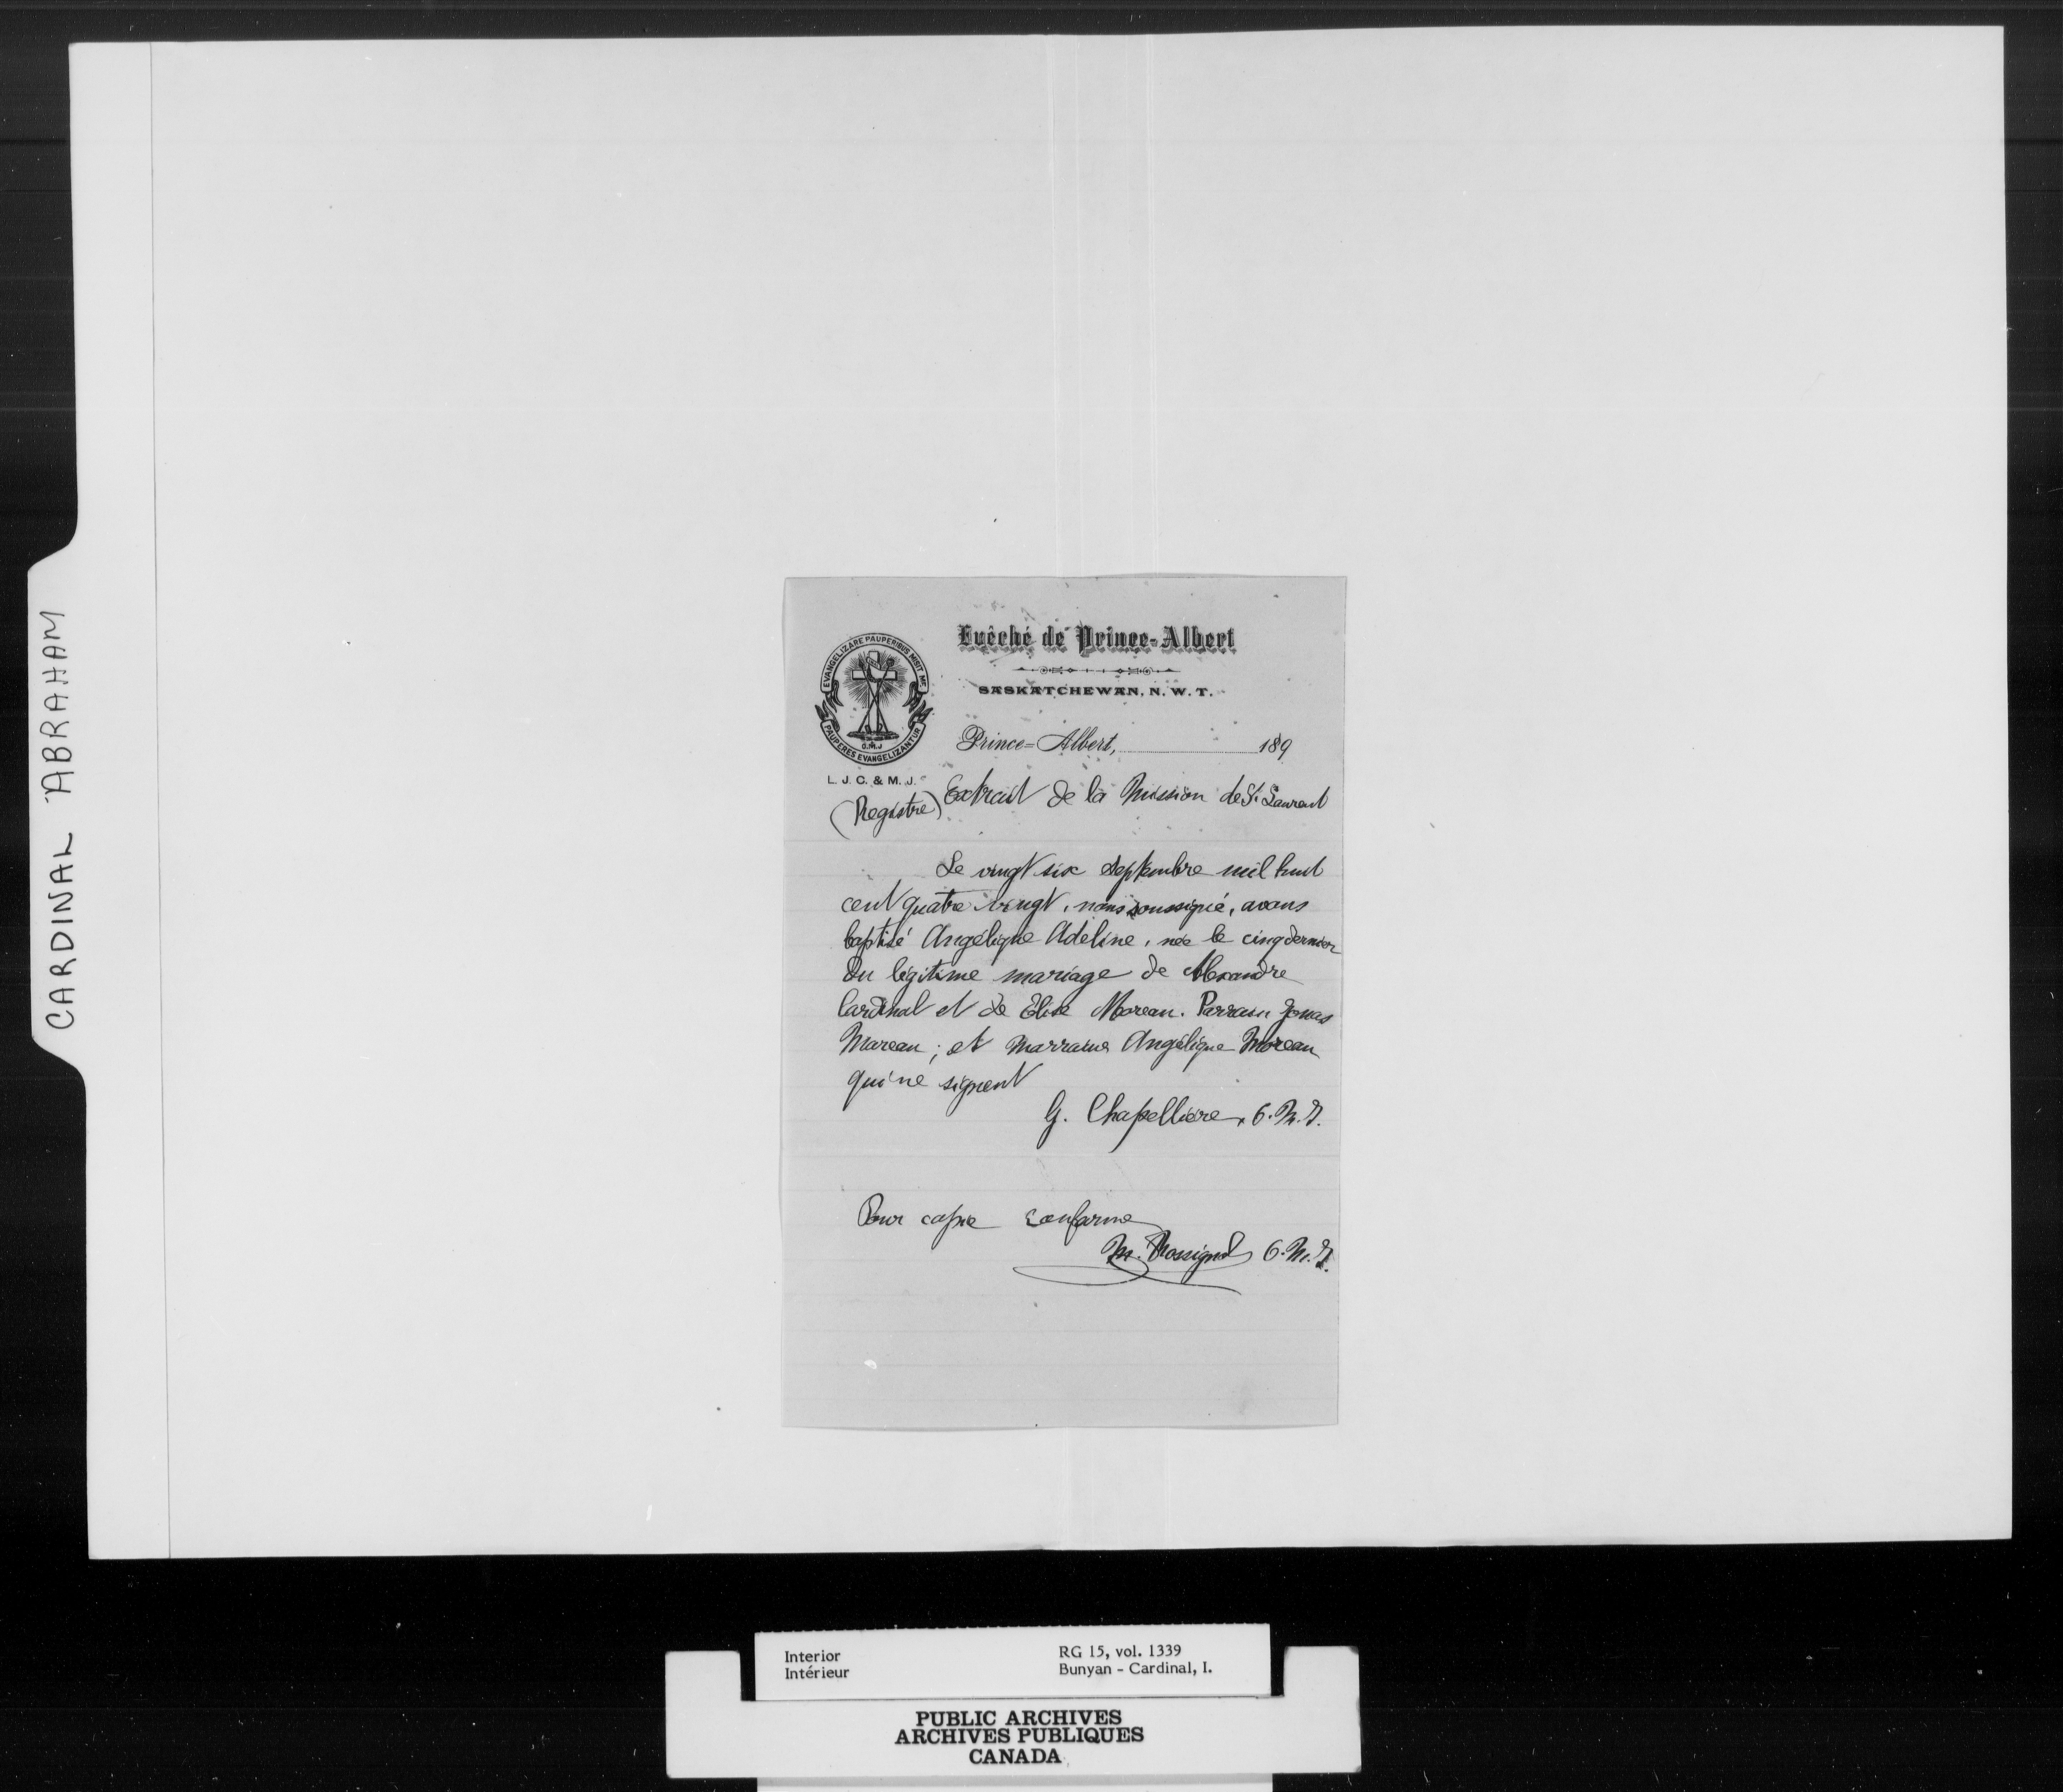 CARDINAL ABRAHAM
Evêché de Prince-Albert
SASKATCHEWAN, N. W. T.
EVANGELIZARE PAUPERIBUS MISIT ME
O.M.J
PAUPERES EVANGELIZANTUR
Prince=Albert, 189
L. J. C. & M. J.
(Registre) Extrait de la Mission de St Laurent
Le vingt six septembre mil huit
cent quatre vingt, nous soussigné, avons
baptisé Angélique Adeline, née le cinq dernier
du légitime mariage de Alexandre
Cardinal et de Elise Moreau. Parrain Jonas
Moreau; et marraine Angélique Moreau
qui ne signent
G. Chapellière, O.M.J.
Pour copie conforme
M. Rossignol O.M.J.
Interior RG 15, vol. 1339
Intérieur Bunyan - Cardinal, I.
PUBLIC ARCHIVES
ARCHIVES PUBLIQUES
CANADA